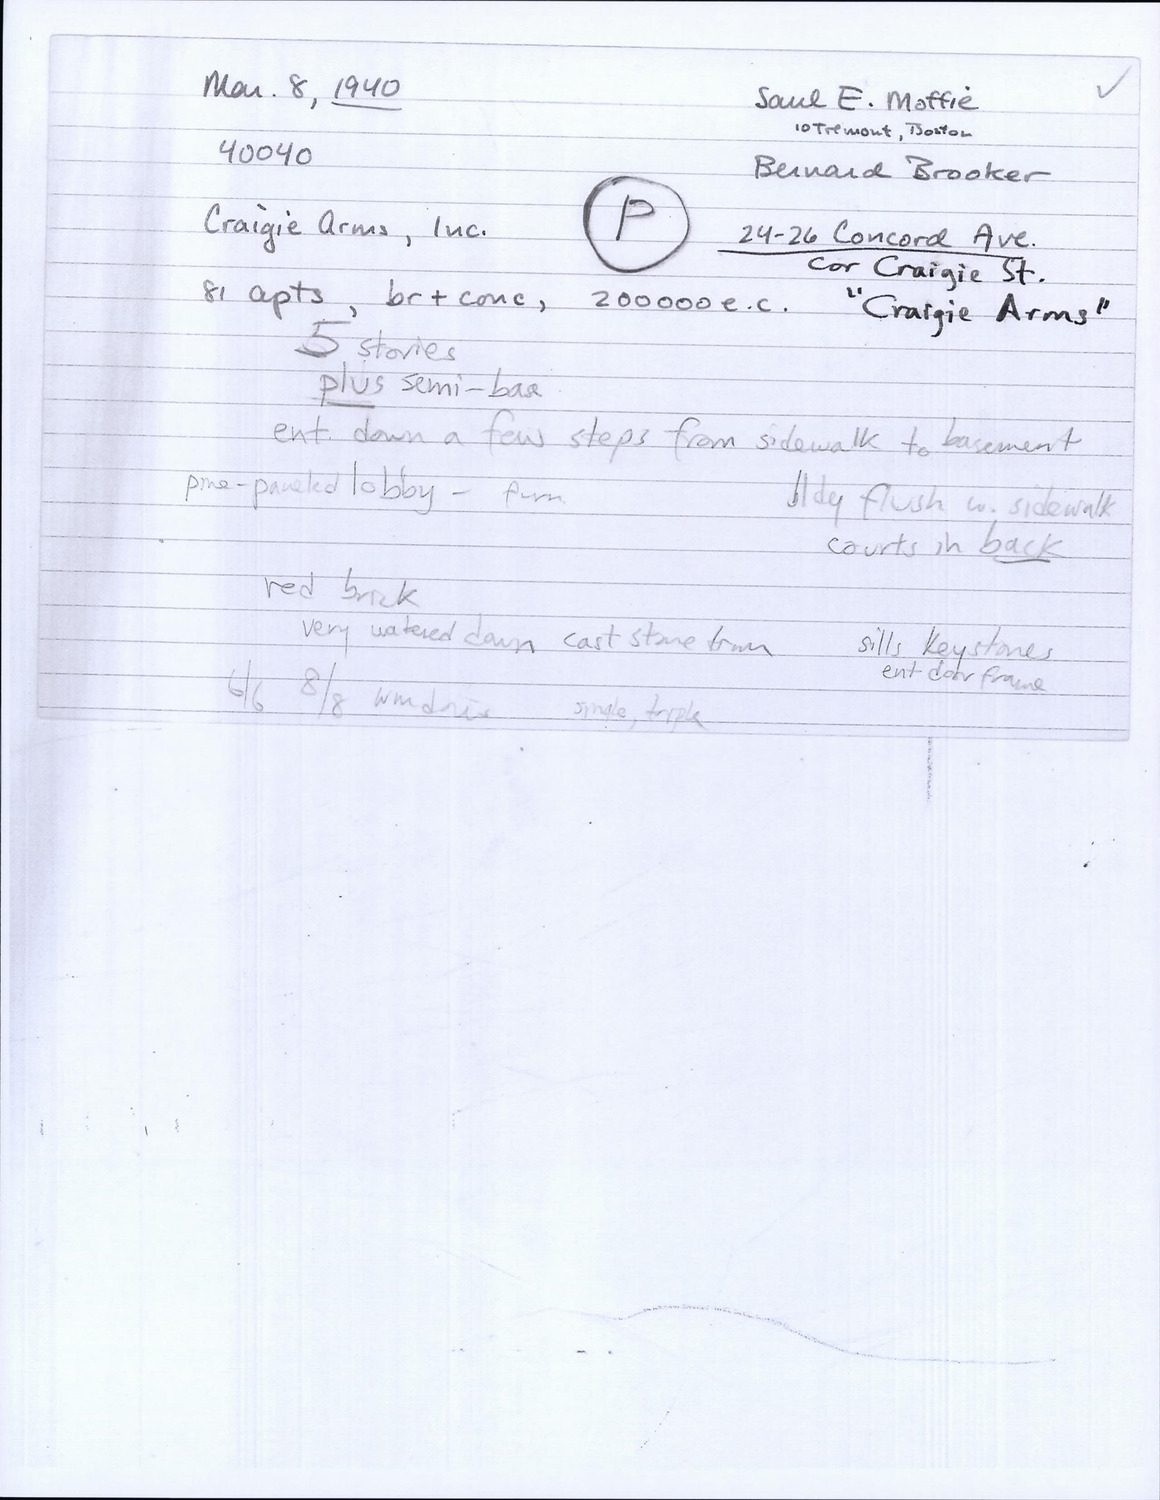 Mar. 8, 1940
Saul E. Moffie
10 Tremont, Boston
40040
Bernard Brooker
Craigie Arms, Inc.
P
24-26 Concord Ave.
cor Craigie St.
81 apts, br + conc, 200000 e.c.
"Craigie Arms"
5 stories
plus semi-bas
ent. down a few steps from sidewalk to basement
pine-paneled lobby - furn
bldg flush w. sidewalk
courts in back
red brick
very watered down cast stone trim
sills keystones
ent door frame
6/6 8/8 windows single, triple